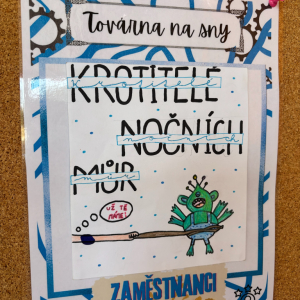 Továrna na sny
KROTITELÉ
krotitelé
NOČNÍCH
nočních
MŮR
můr
UŽ TĚ
MÁME!
ZAMĚSTNANCI